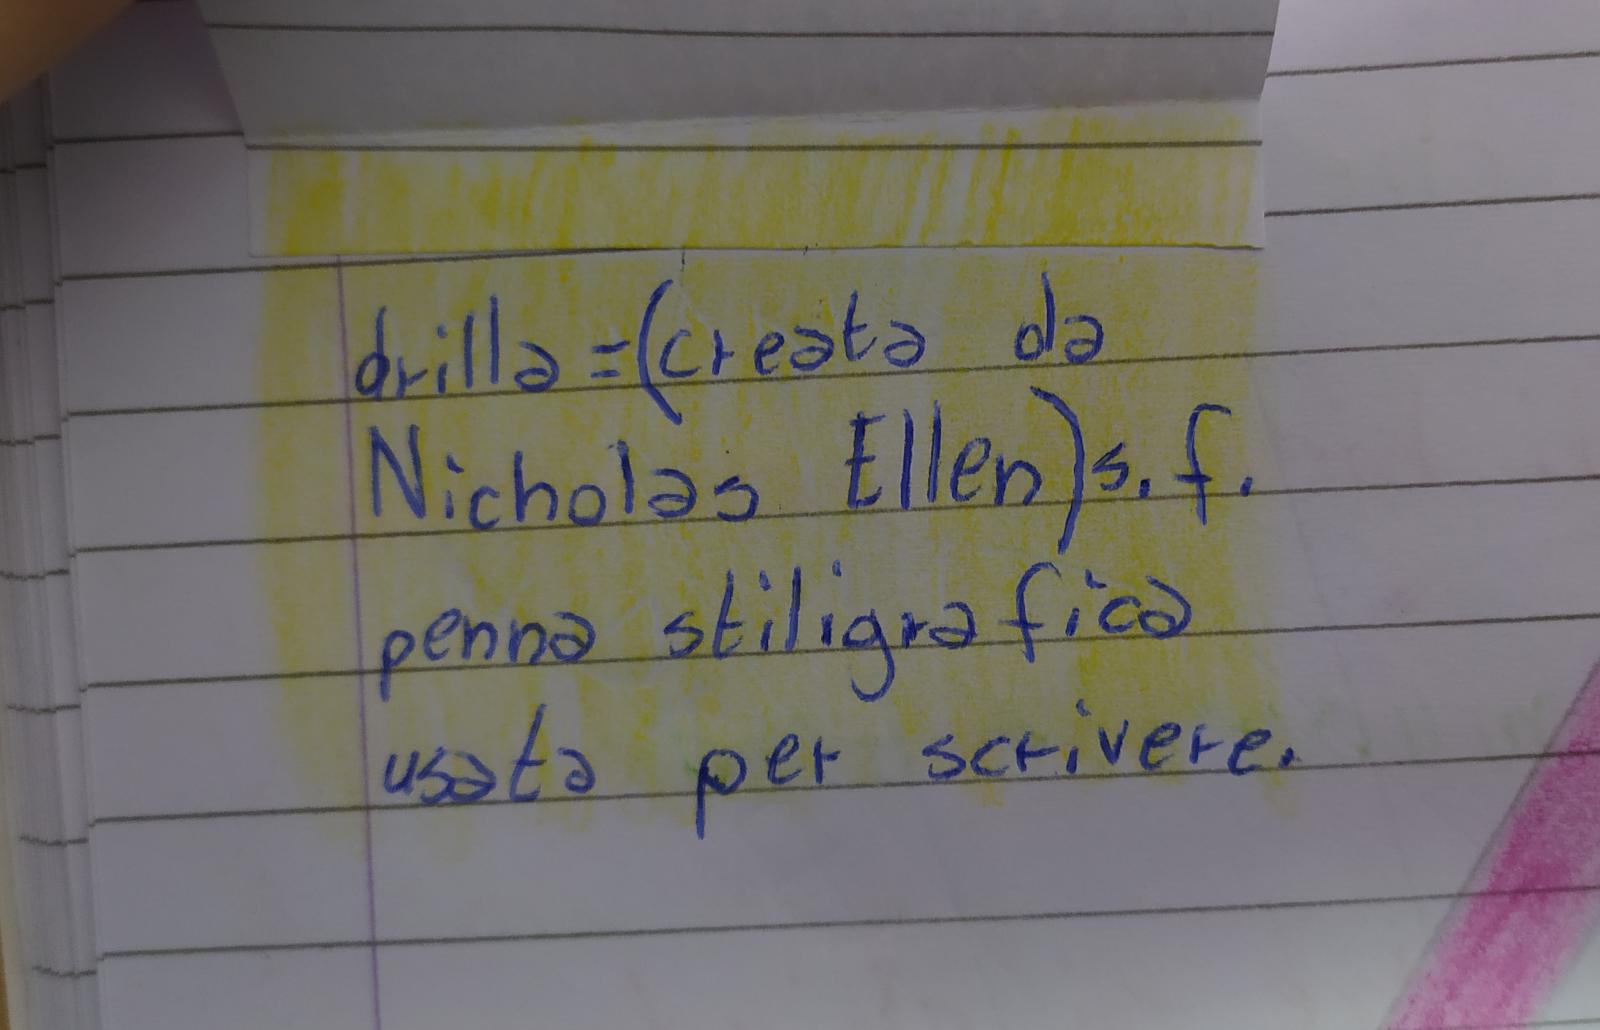 drilla=(creata da
Nicholas Ellen)s.f.
penna stiligrafica
usata per scrivere.